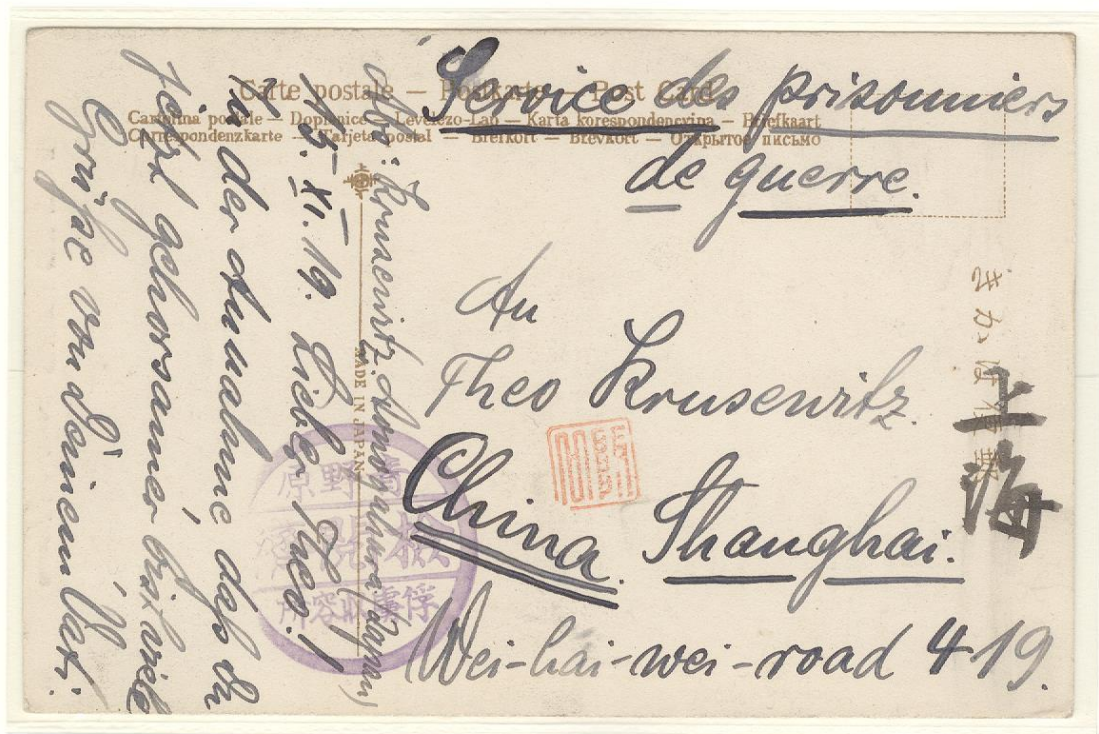 Carte postale — Postkarte — Post Card
Campina postale – Dopisnice – Levelezo-Lap – Karta korespondencyina – Briefkaart
Correspondenzkarte – Tarjeta postal – Brefkort – Brevkort – Открытое письмо
Service des prisonniers
de guerre.
An
Theo Krusewitz.
China. Shanghai.
Wei-hai-wei-road 419.
きかは便郵
上海
MADE IN JAPAN
原野青
濟閲檢
所容收虜俘
Abs: Krusewitz. Aonogahara (Japan)
15. XI. 19. Lieber Theo!
In der Annahme dass Du
jetzt gehorsamer bist viele
Grüsse von Deinem Vati.